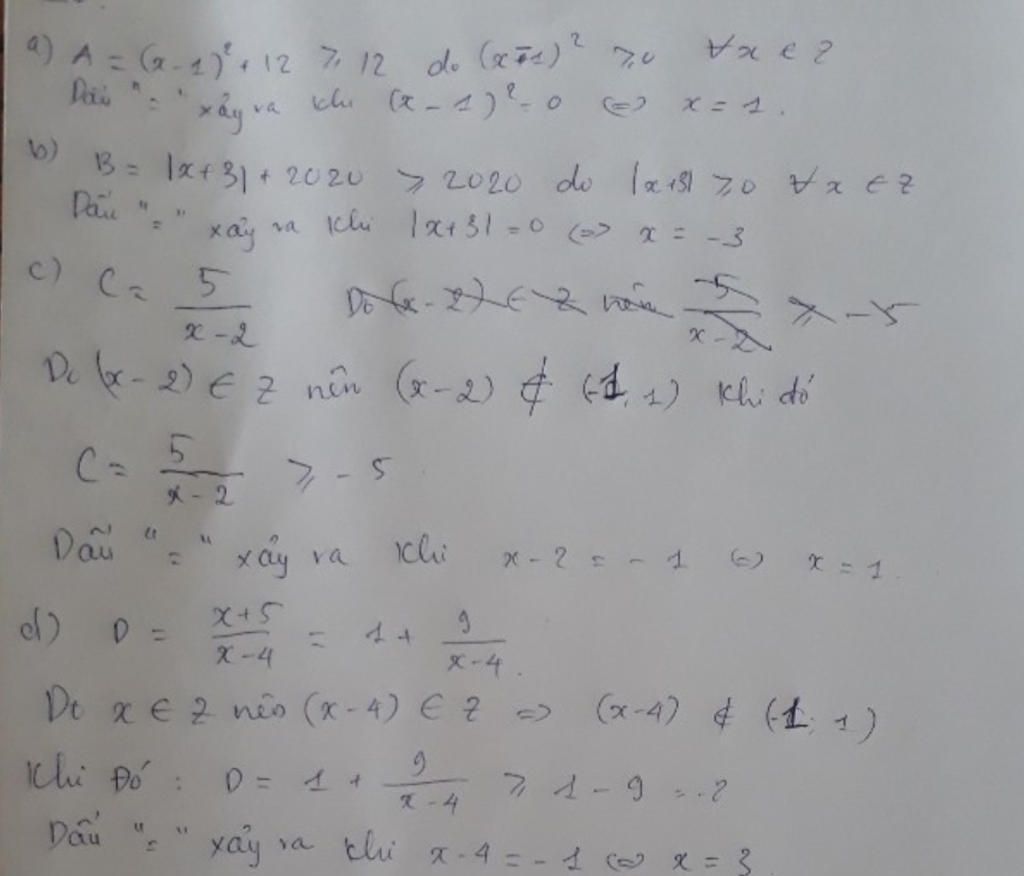 a) A = (x-1)² + 12 ≥ 12 do (x-1)² ≥ 0 ∀x ∈ Z
Dấu "=" xảy ra khi (x-1)² = 0 ⇔ x = 1.
b) B = |x+3| + 2020 ≥ 2020 do |x+3| ≥ 0 ∀x ∈ Z
Dấu "=" xảy ra khi |x+3| = 0 ⇔ x = -3
c) C = 5/(x-2) Do (x-2) ∈ Z nên 5/(x-2) ≥ -5
Do (x-2) ∈ Z nên (x-2) ∉ (-1, 1) Khi đó
C = 5/(x-2) ≥ -5
Dấu "=" xảy ra khi x-2 = -1 ⇔ x = 1.
d) D = (x+5)/(x-4) = 1 + 9/(x-4).
Do x ∈ Z nên (x-4) ∈ Z ⇒ (x-4) ∉ (-1; 1)
Khi Đó : D = 1 + 9/(x-4) ≥ 1 - 9 =
Dấu "=" xảy ra khi x-4 = -1 ⇔ x = 3